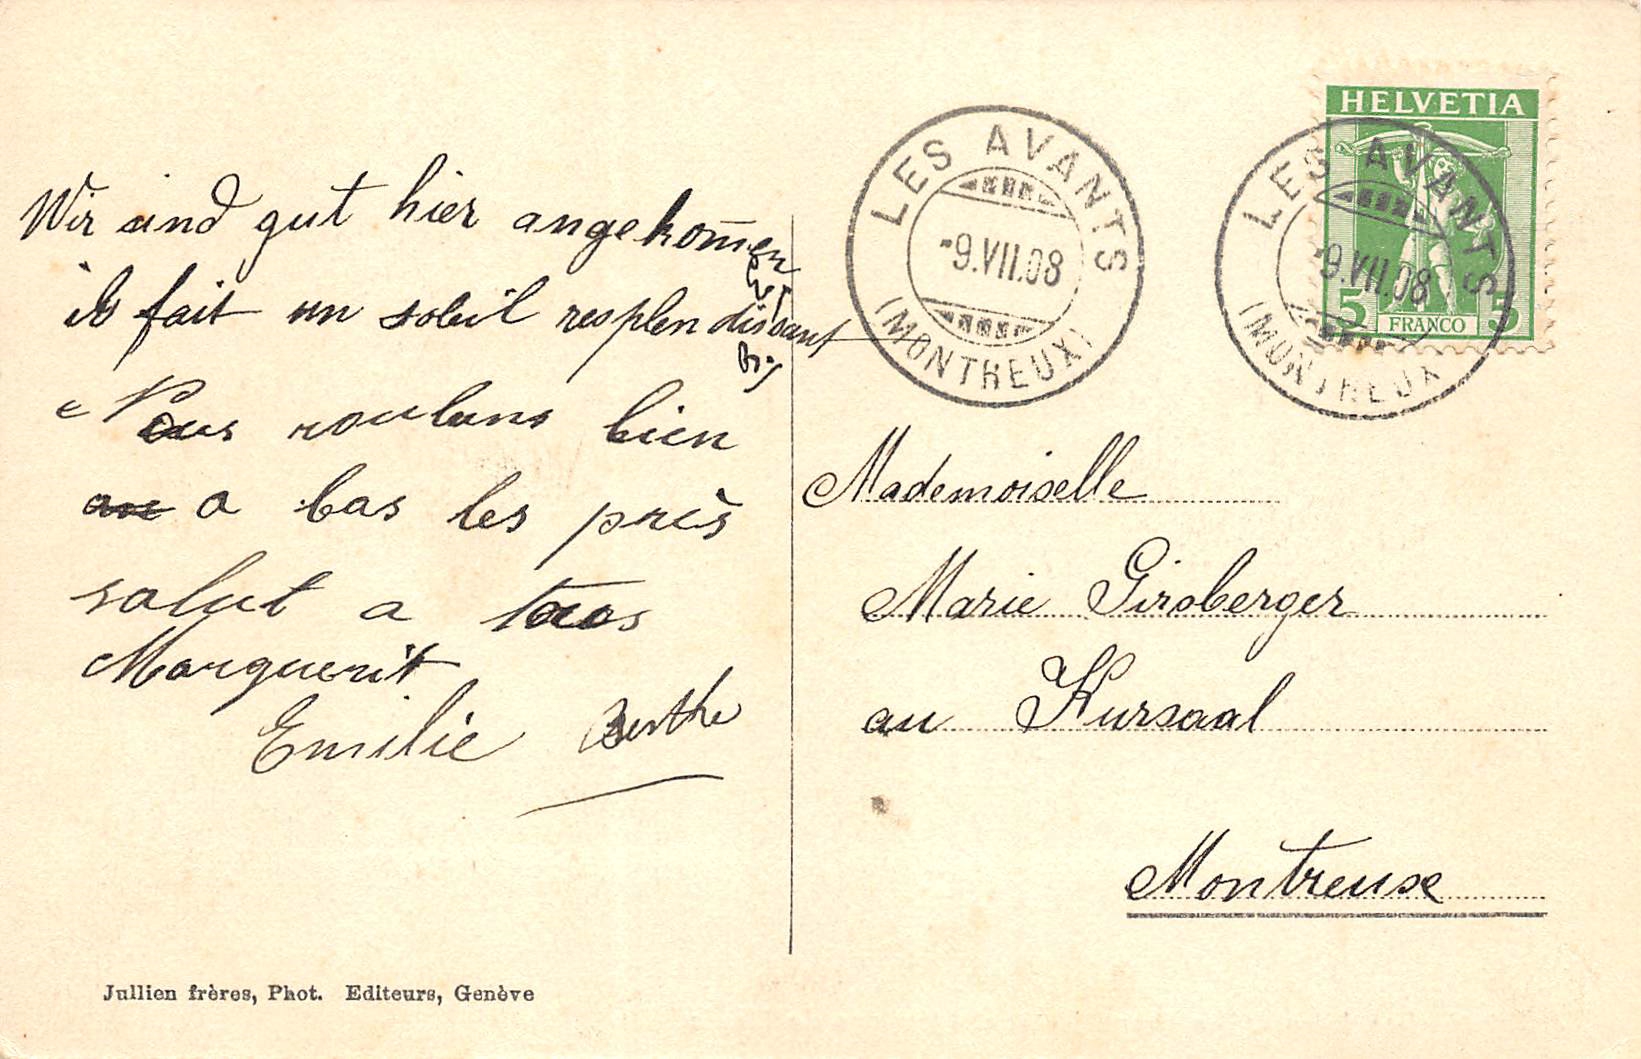 Wir sind gut hier angekom̄en
il fait un soleil resplendissant
Nous roulons bien
a bas les près
salut a tous
Marguerit
Emilie Berthe
Jullien frères, Phot. Editeurs, Genève
LES AVANTS
-9.VII.08
(MONTREUX)
HELVETIA
5 FRANCO 5
LES AVANTS
-9.VII.08
(MONTREUX)
Mademoiselle
Marie Girsberger
au Kursaal
Montreuse